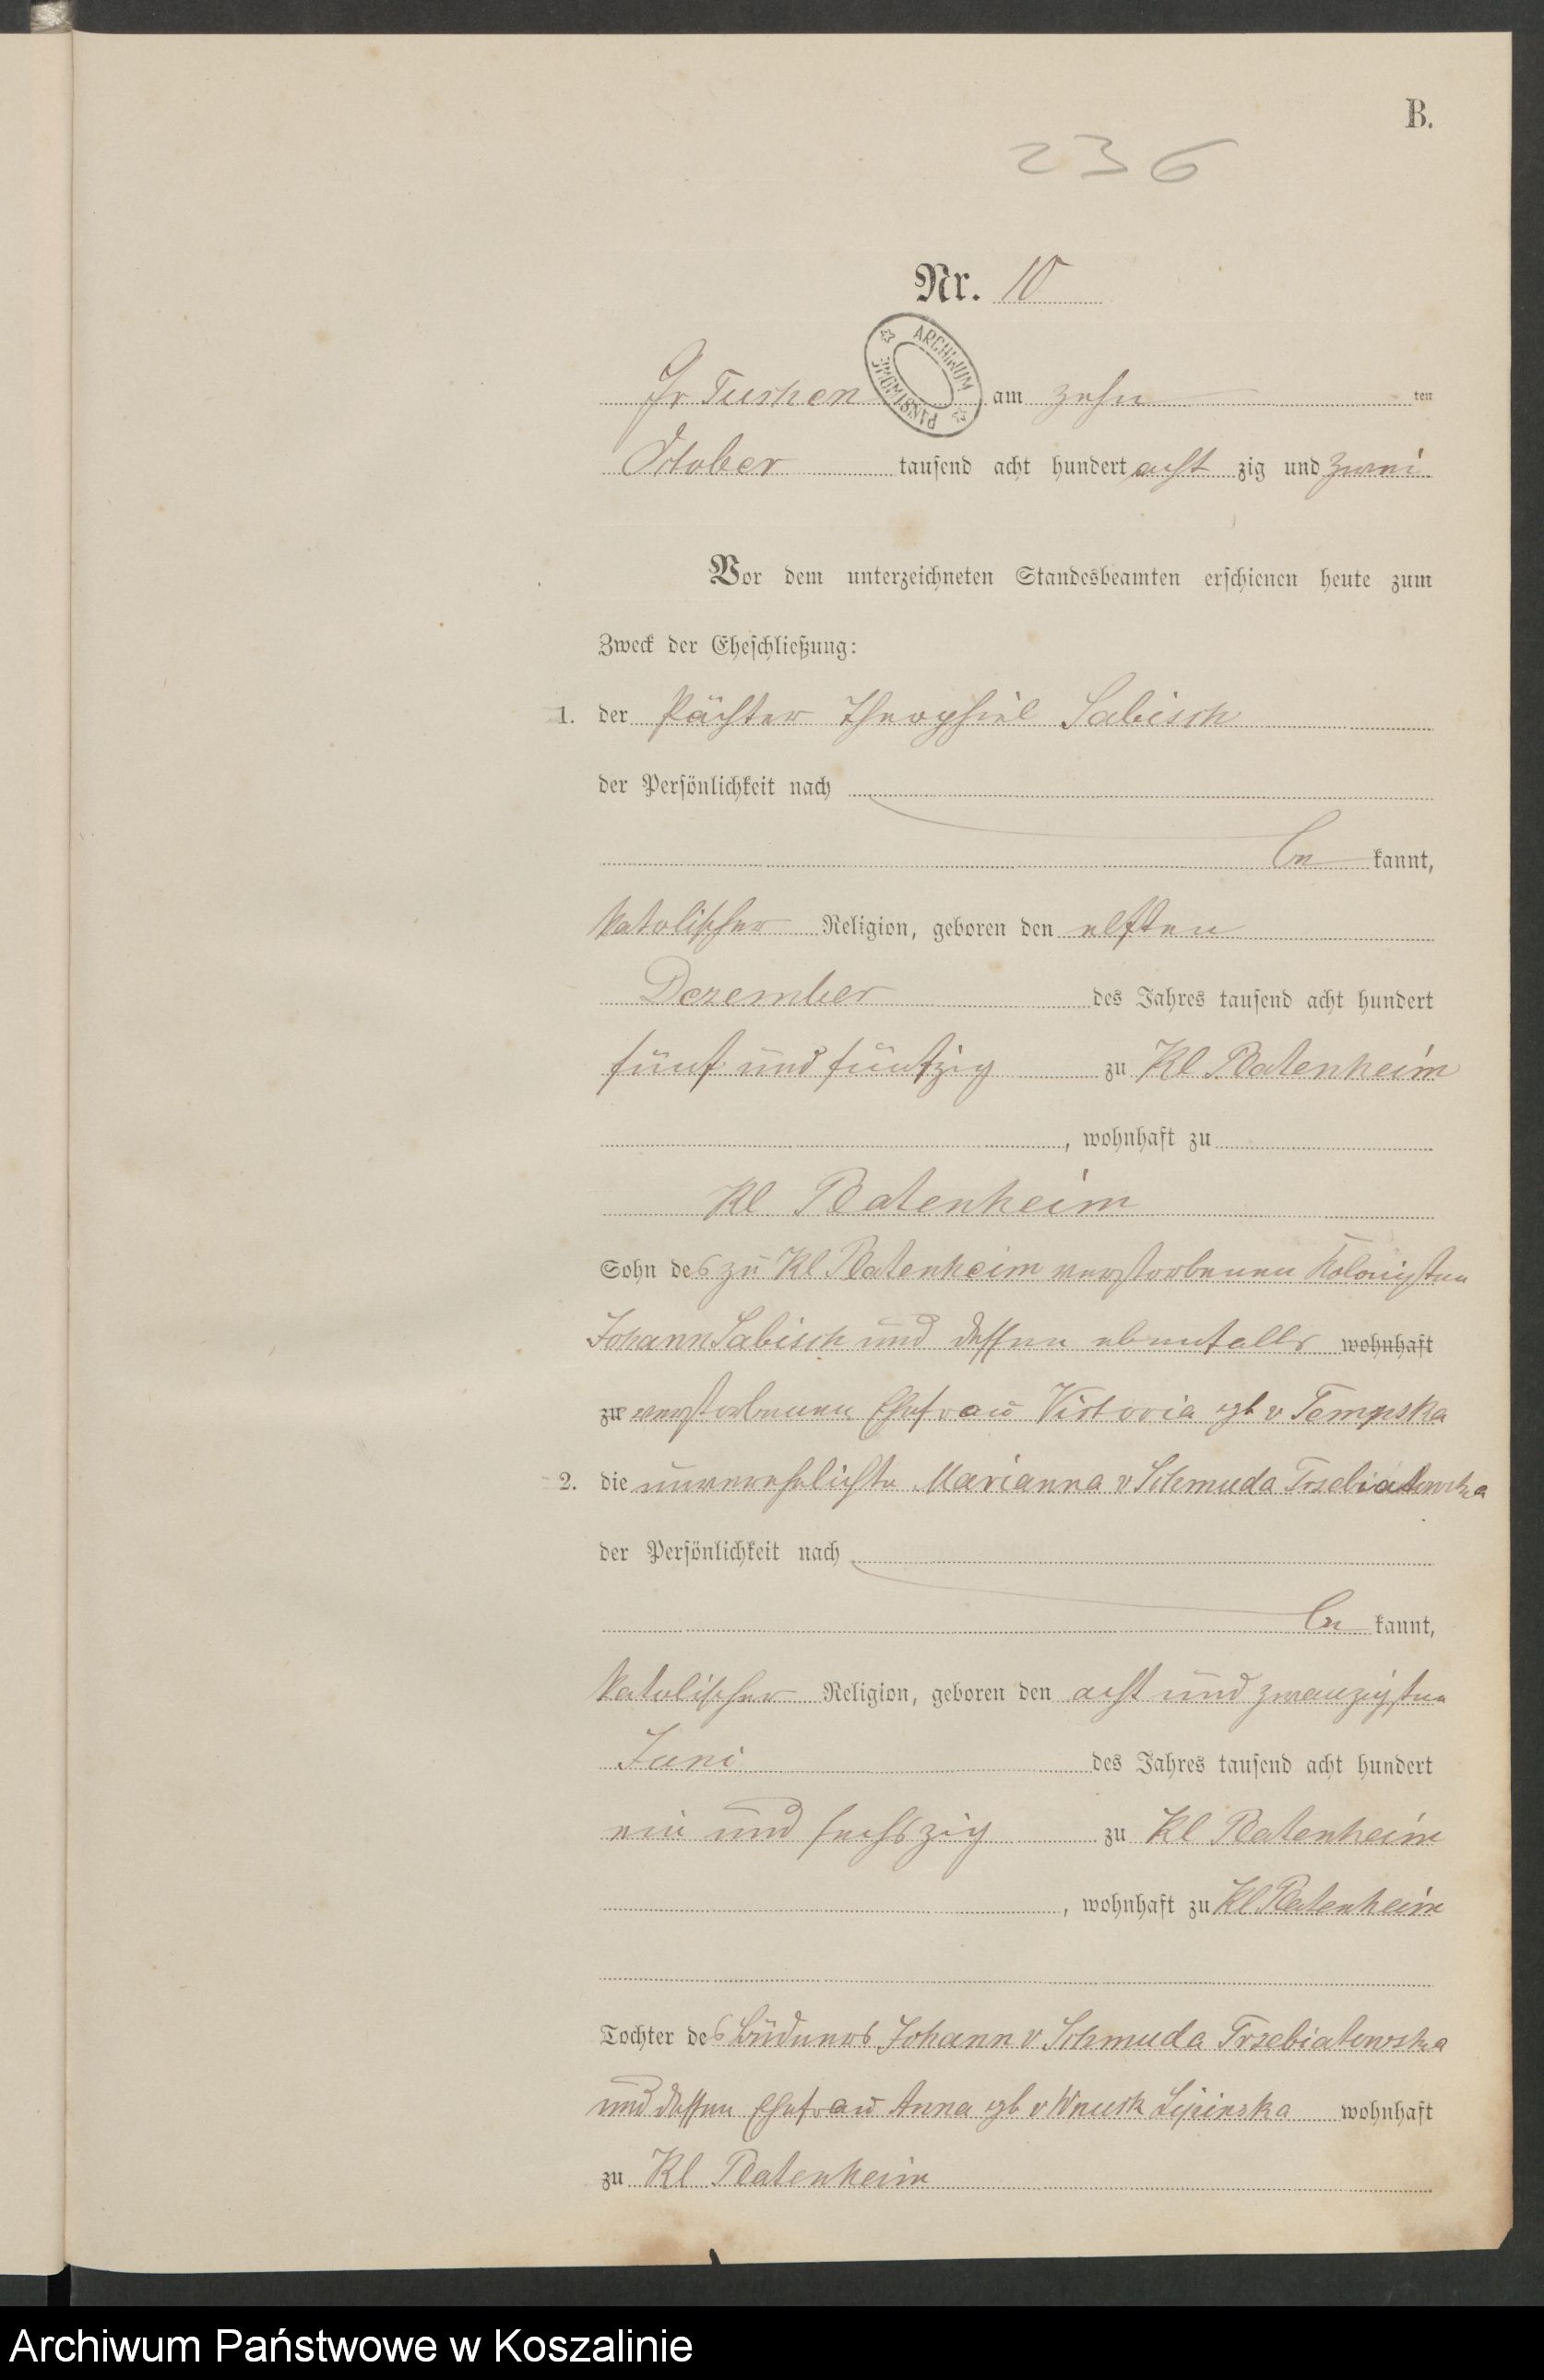 B.
236
Nr. 10
Gr Tuchen am zehn ten
October tausend acht hundert acht zig und zwei
ARCHIWUM PAŃSTWOWE
Vor dem unterzeichneten Standesbeamten erschienen heute zum
Zweck der Eheschließung:
1. der Pächter Theophiel Sabisch
der Persönlichkeit nach
be kannt,
katolischer Religion, geboren den elften
Dezember des Jahres tausend acht hundert
fünf und fünfzig zu Kl Platenheim
, wohnhaft zu
Kl Platenheim
Sohn des zu Kl Platenheim verstorbenen Kolonisten
Johann Sabisch und dessen ebenfalls wohnhaft
zu verstorbenen Ehefrau Victoria gb v Tempska
2. die unverehelichte Marianna v Schmuda Trzebiatowska
der Persönlichkeit nach
be kannt,
katolischer Religion, geboren den acht und zwanzigsten
Juni des Jahres tausend acht hundert
ein und sechszig zu Kl Platenheim
, wohnhaft zu Kl Platenheim
Tochter des Büdners Johann v Schmuda Trzebiatowska
und dessen Ehefrau Anna gb v Wnuck Lipinska wohnhaft
zu Kl Platenheim
Archiwum Państwowe w Koszalinie